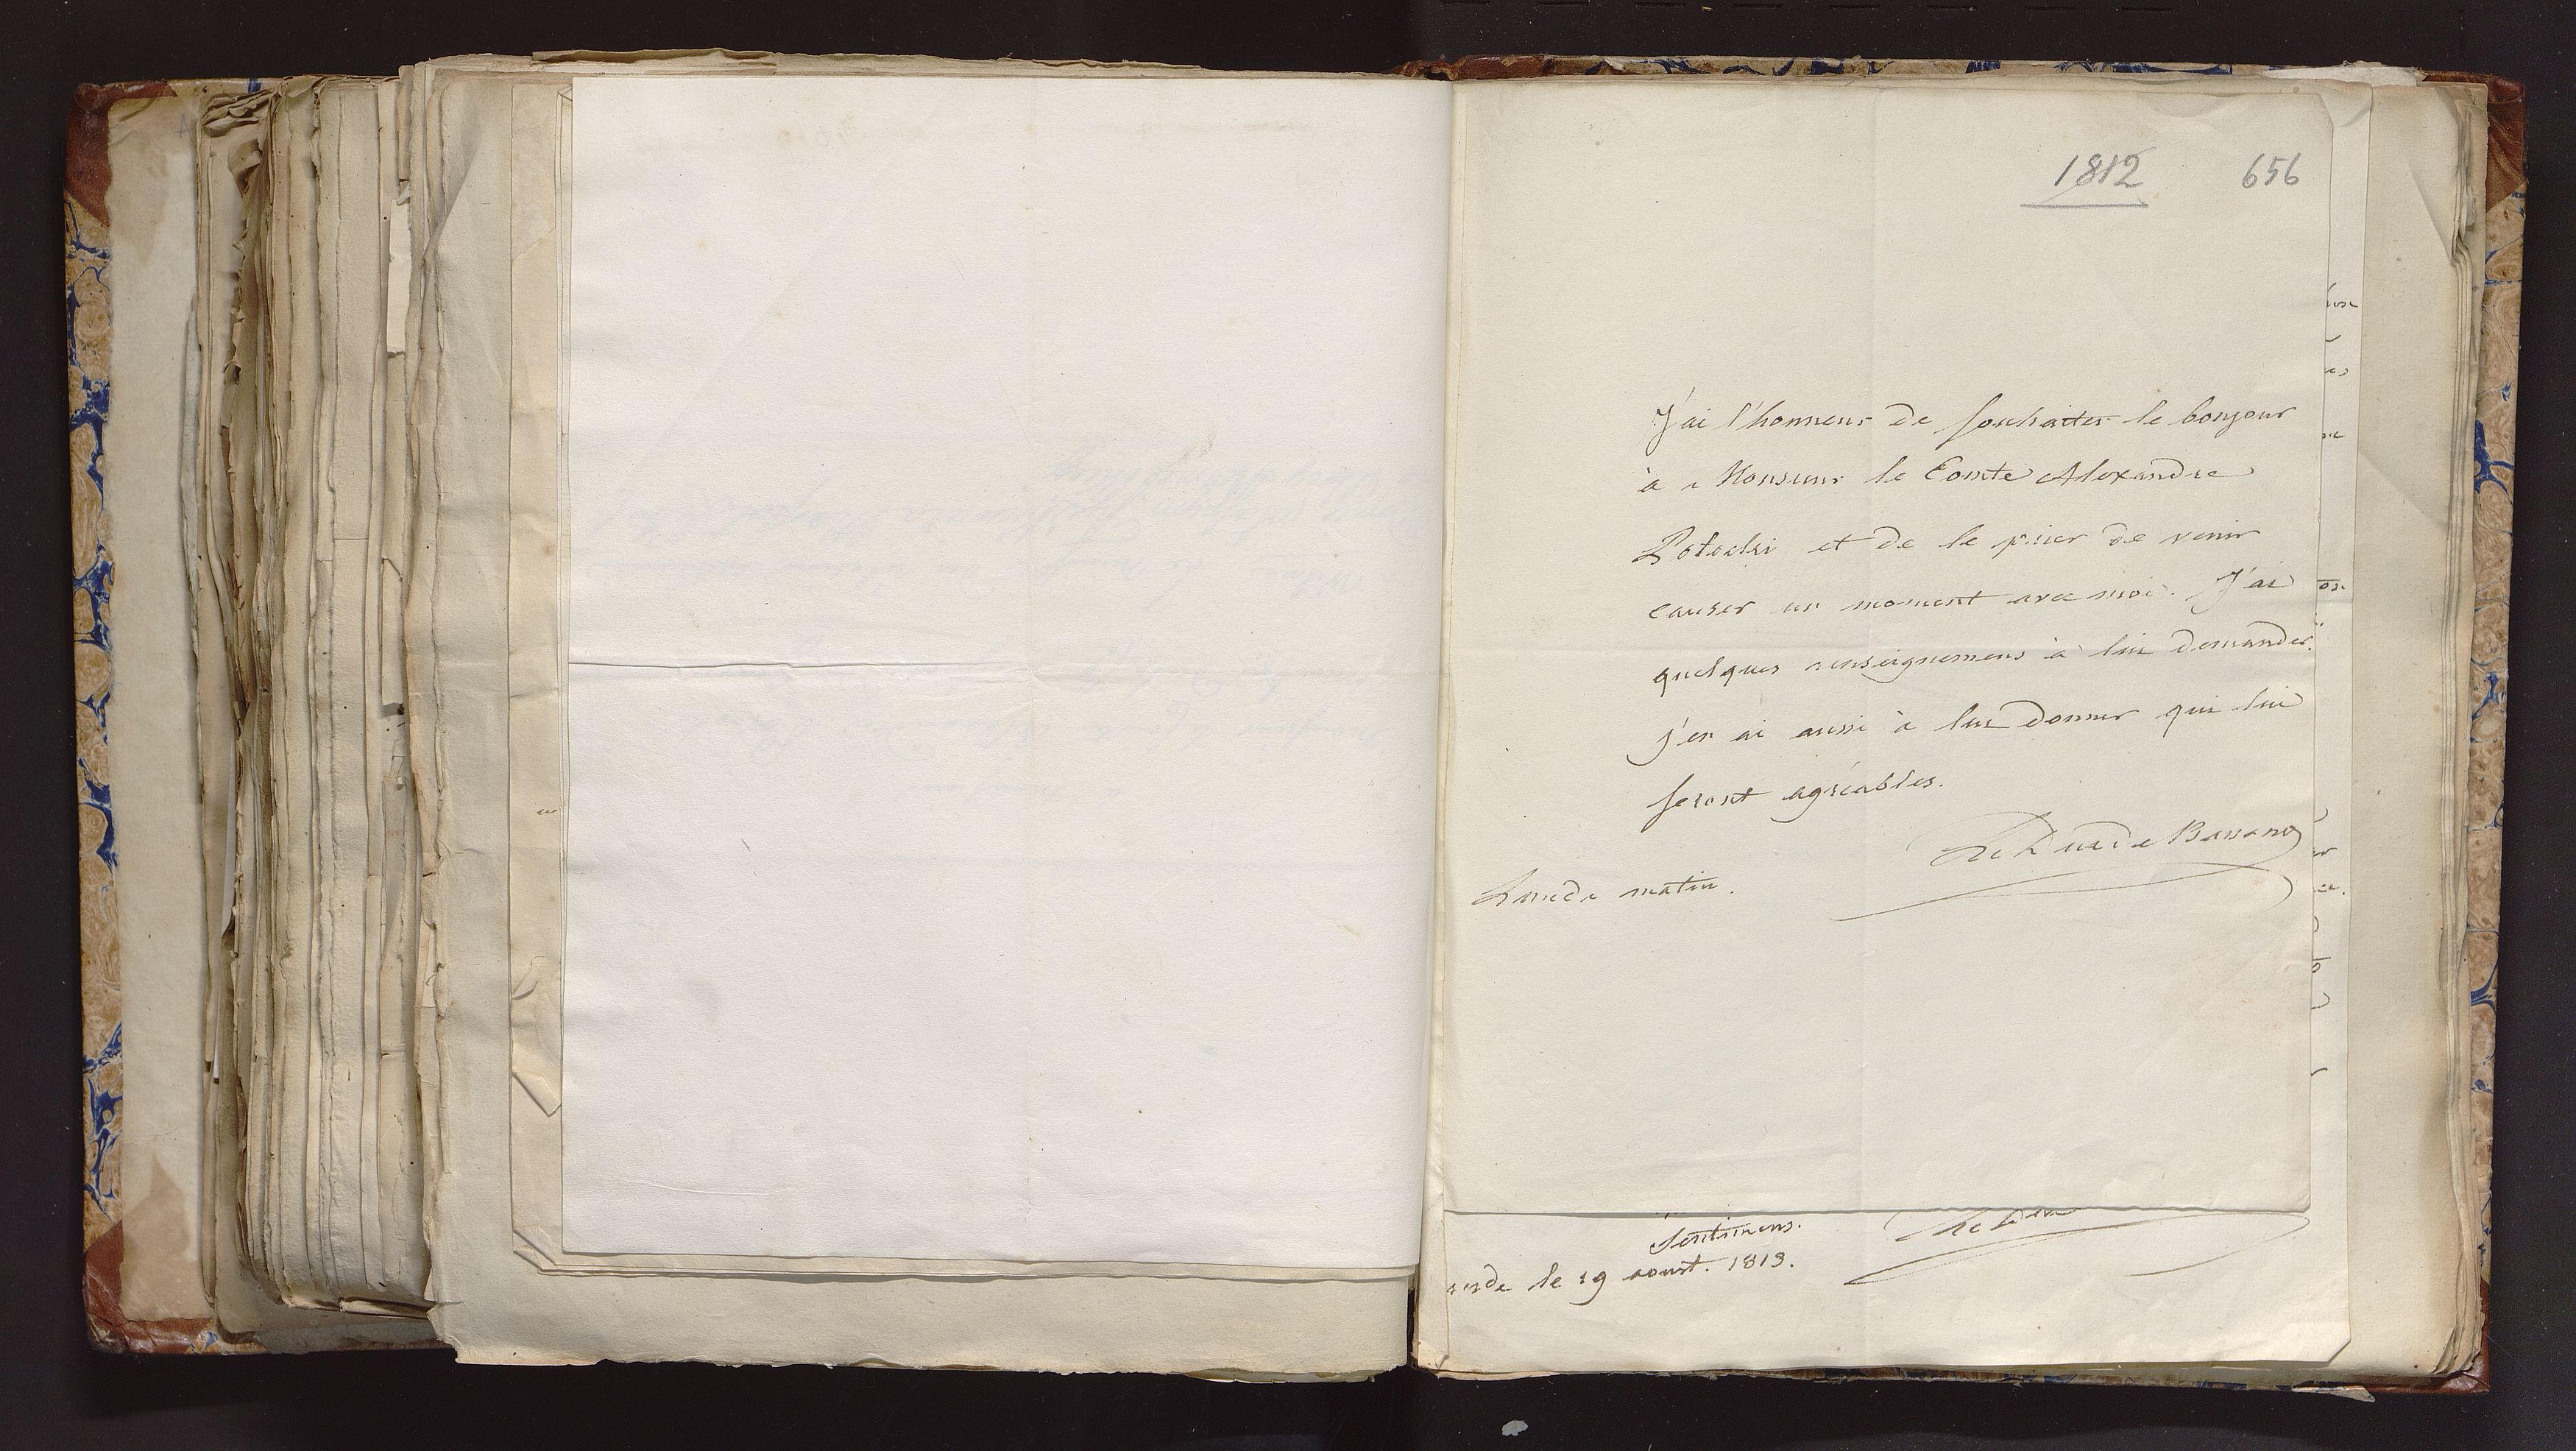 1812 656
J'ai l'honneur de souhaiter le bonjour
à Monsieur le Comte Alexandre
Potocki et de le prier de venir
causer un moment avec moi. J'ai
quelques renseignemens à lui demander.
j'en ai aussi à lui donner qui lui
seront agréables.
Le Duc de Bassano
Lundi matin.
sentimens.
le 19 aoust. 1813.